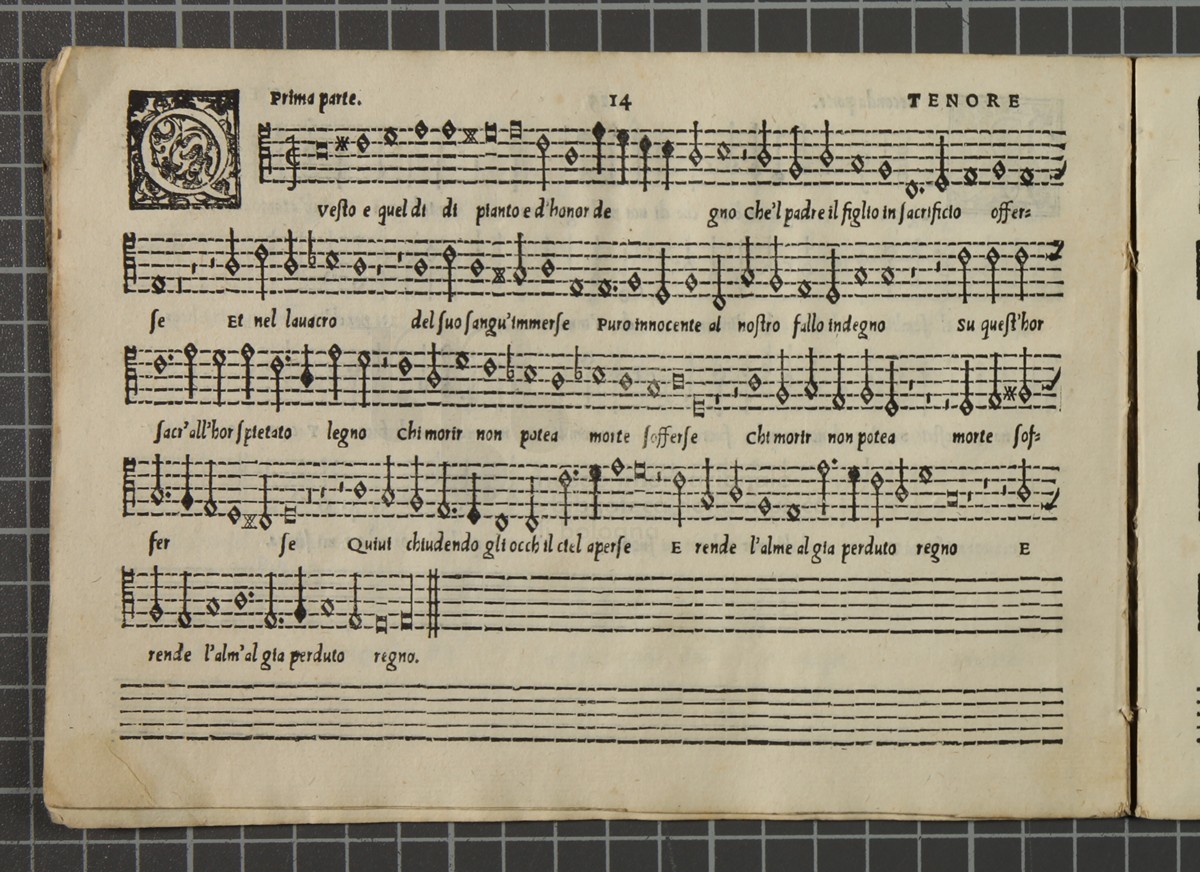 Prima parte. 14 TENORE
Q vesto e quel di di pianto e d'honor de gno Che'l padre il figlio in sacrificio offer=
se Et nel lauacro del suo sangu'immerse Puro innocente al nostro fallo indegno Su quest'hor
sacr'all'hor spietato legno Chi morir non potea morte sofferse Chi morir non potea morte sof=
fer se Quiui chiudendo gli occh il ciel aperse E rende l'alme al gia perduto regno E
rende l'alm'al gia perduto regno.